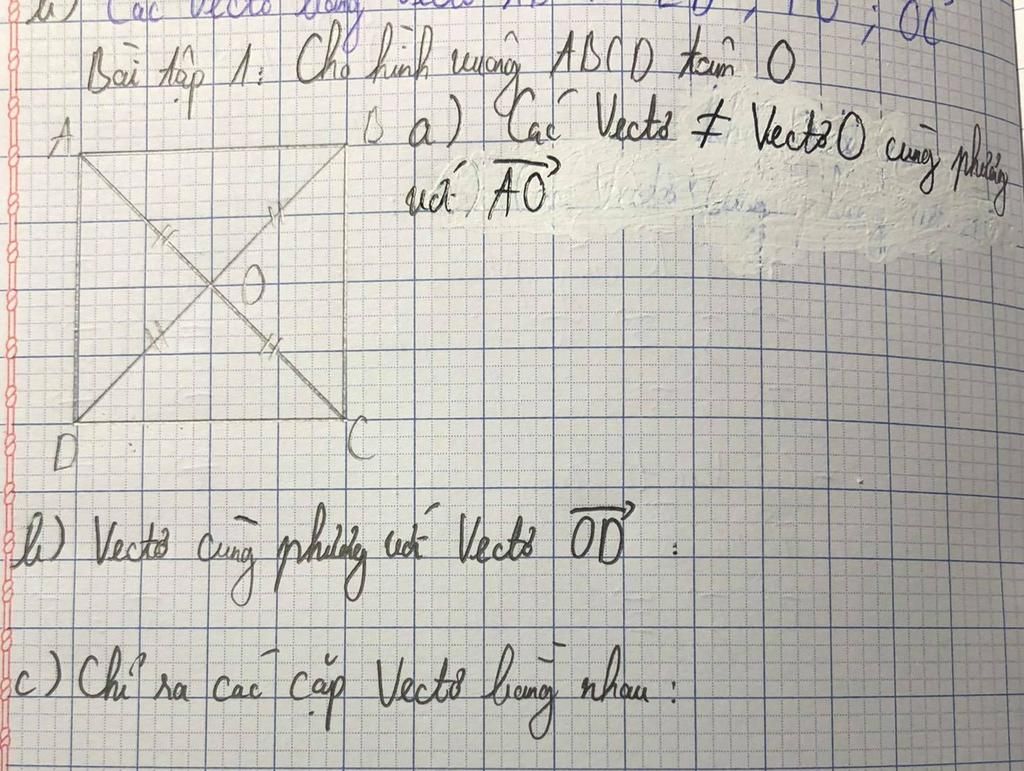 b) Các Vectơ bằng vectơ
; OC
Bài tập 1: Cho hình vuông ABCD tâm O
A
B
a) Các Vectơ ≠ Vectơ O cùng phương
với AO
O
D
C
b) Vectơ cùng phương với Vectơ OD :
c) Chỉ ra các cặp Vectơ bằng nhau :